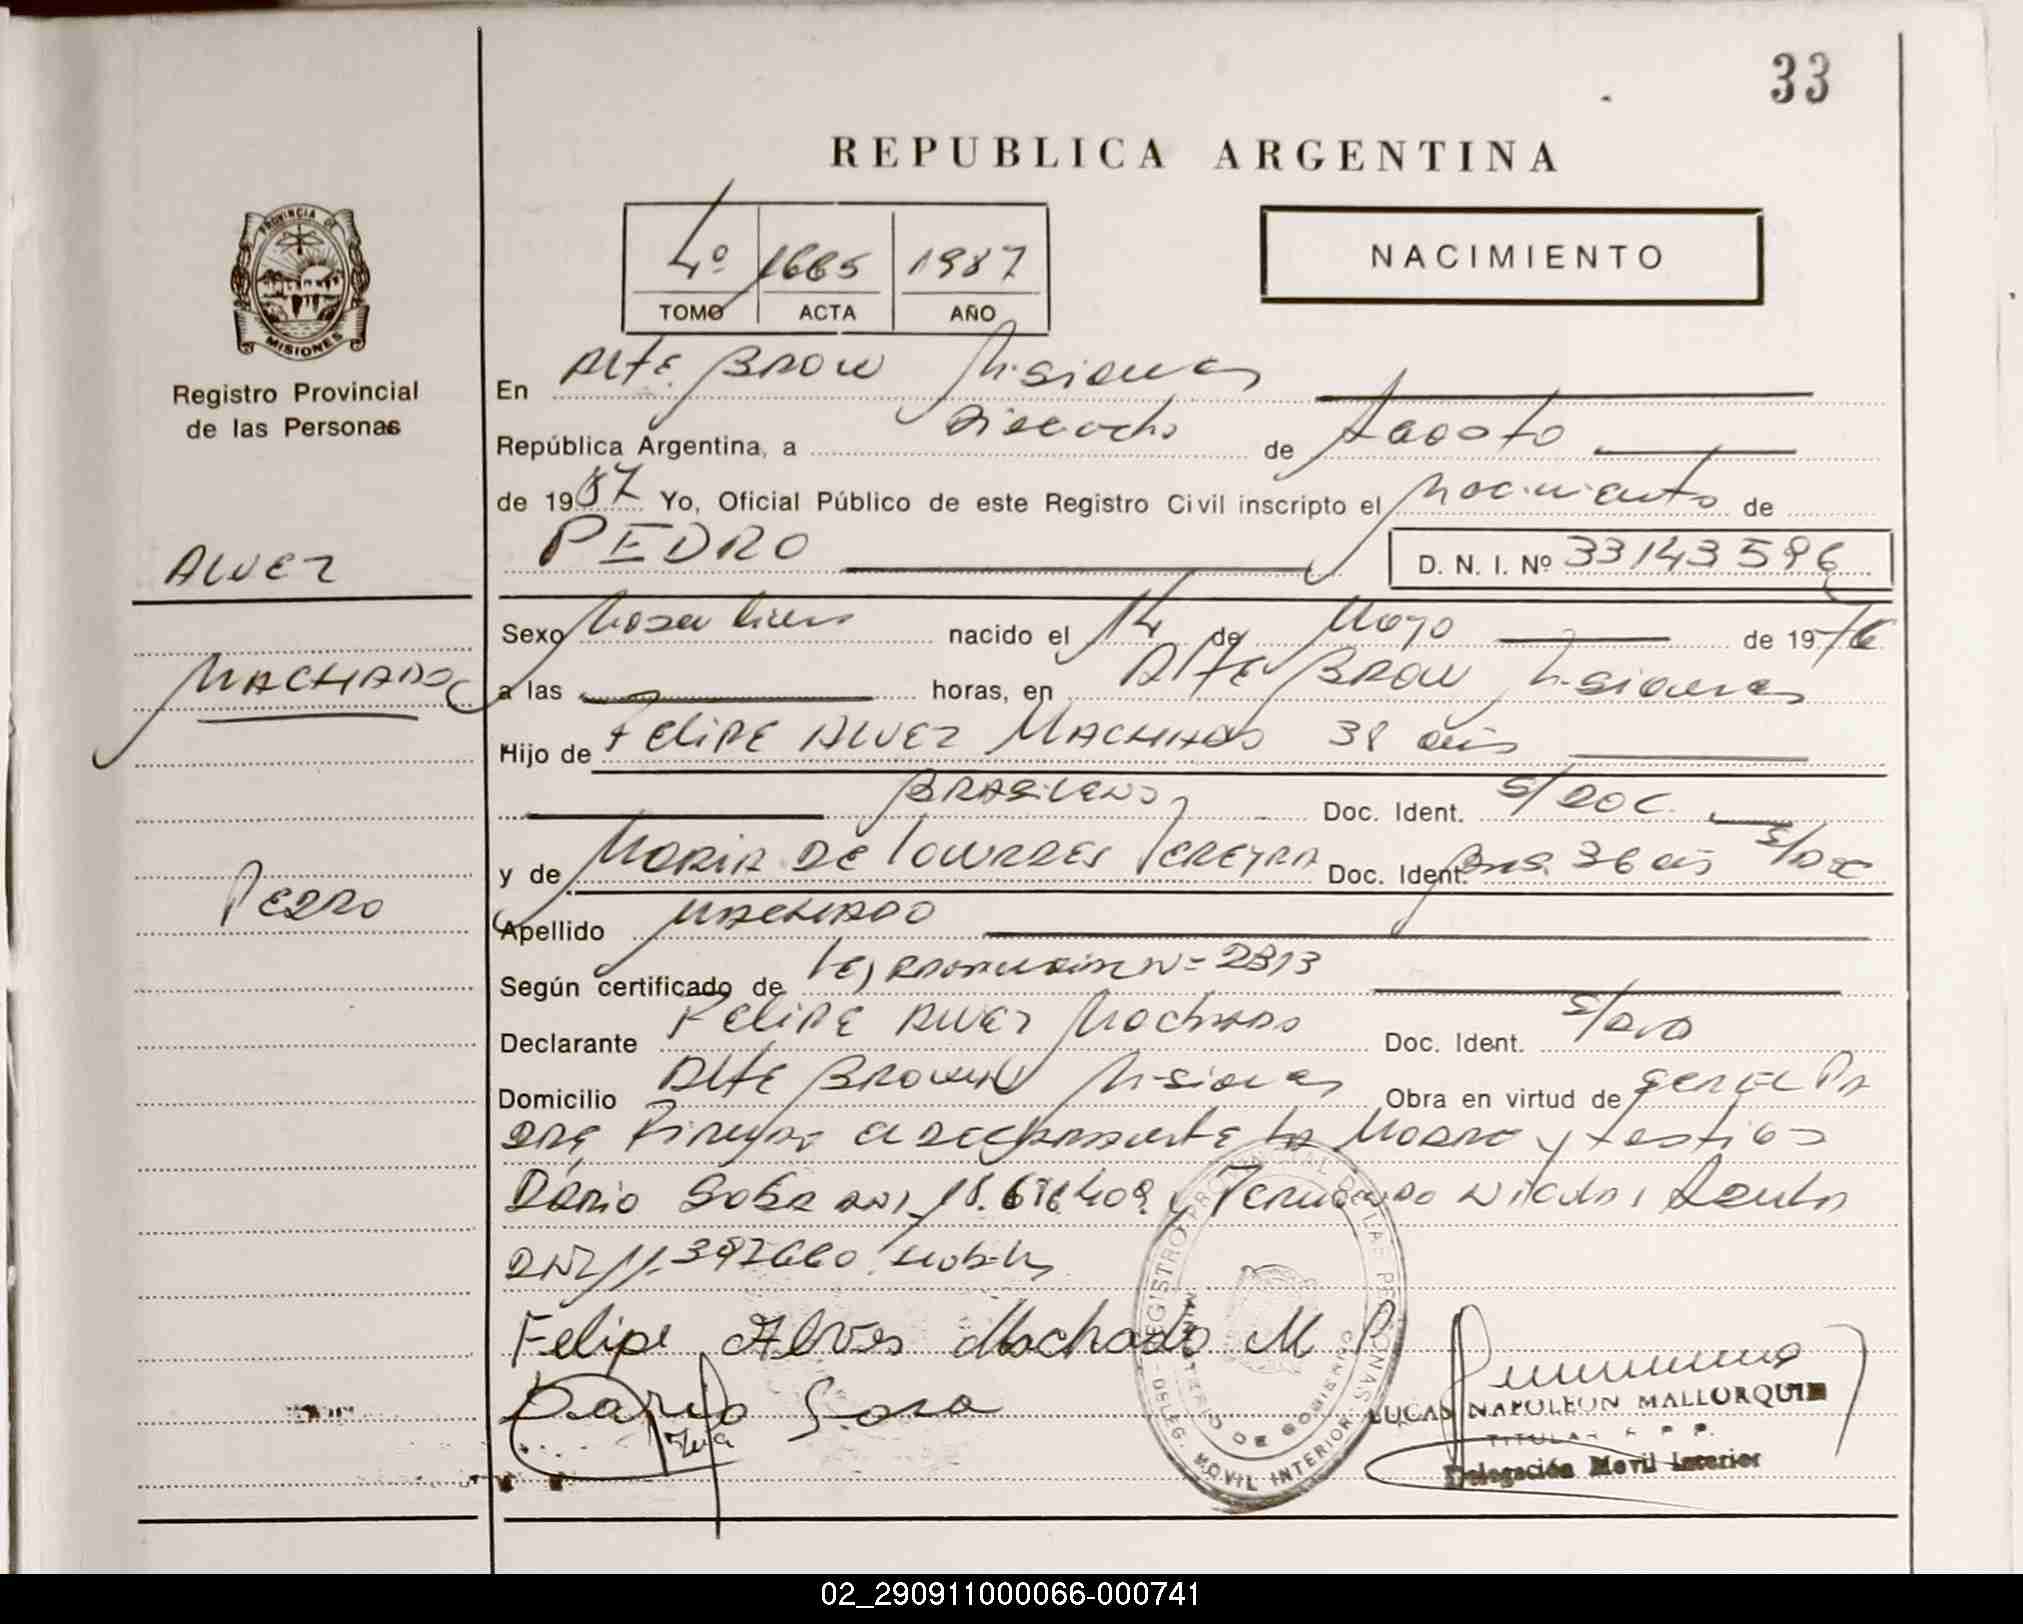 33
REPUBLICA ARGENTINA
4º 1665 1987
TOMO ACTA AÑO
NACIMIENTO
PROVINCIA DE
MISIONES
Registro Provincial
de las Personas
ALVEZ
MACHADO
Pedro
En Alte. Brow Misiones
República Argentina, a Dieciocho de Agosto
de 1987 Yo, Oficial Público de este Registro Civil inscripto el Nacimiento de
PEDRO D. N. I. Nº 33143596
Sexo Masculino nacido el 14 de Mayo de 1976
a las horas, en Alte Brow Misiones
Hijo de Felipe Alvez Machado 38 años
Brasileno Doc. Ident. S/Doc.
y de Maria de Lourdes Pereyra Doc. Ident. Bras. 36 años S/Doc
Apellido Machado
Según certificado de Nº 2813
Declarante Felipe Alvez Machado Doc. Ident.
Domicilio Alte Brown Misiones Obra en virtud de
el declarante la Madre y testigos
Dario Sosa DNI 18.676409 y Fernando
DNI 11.397660
Felipe Alves Machado M P
Dario Sosa
REGISTRO PROVINCIAL DE LAS PERSONAS
MINISTERIO DE GOBIERNO
DELEG. MOVIL INTERIOR
LUCAS NAPOLEON MALLORQUIN
TITULAR R P P.
Delegación Movil Interior
02_290911000066-000741